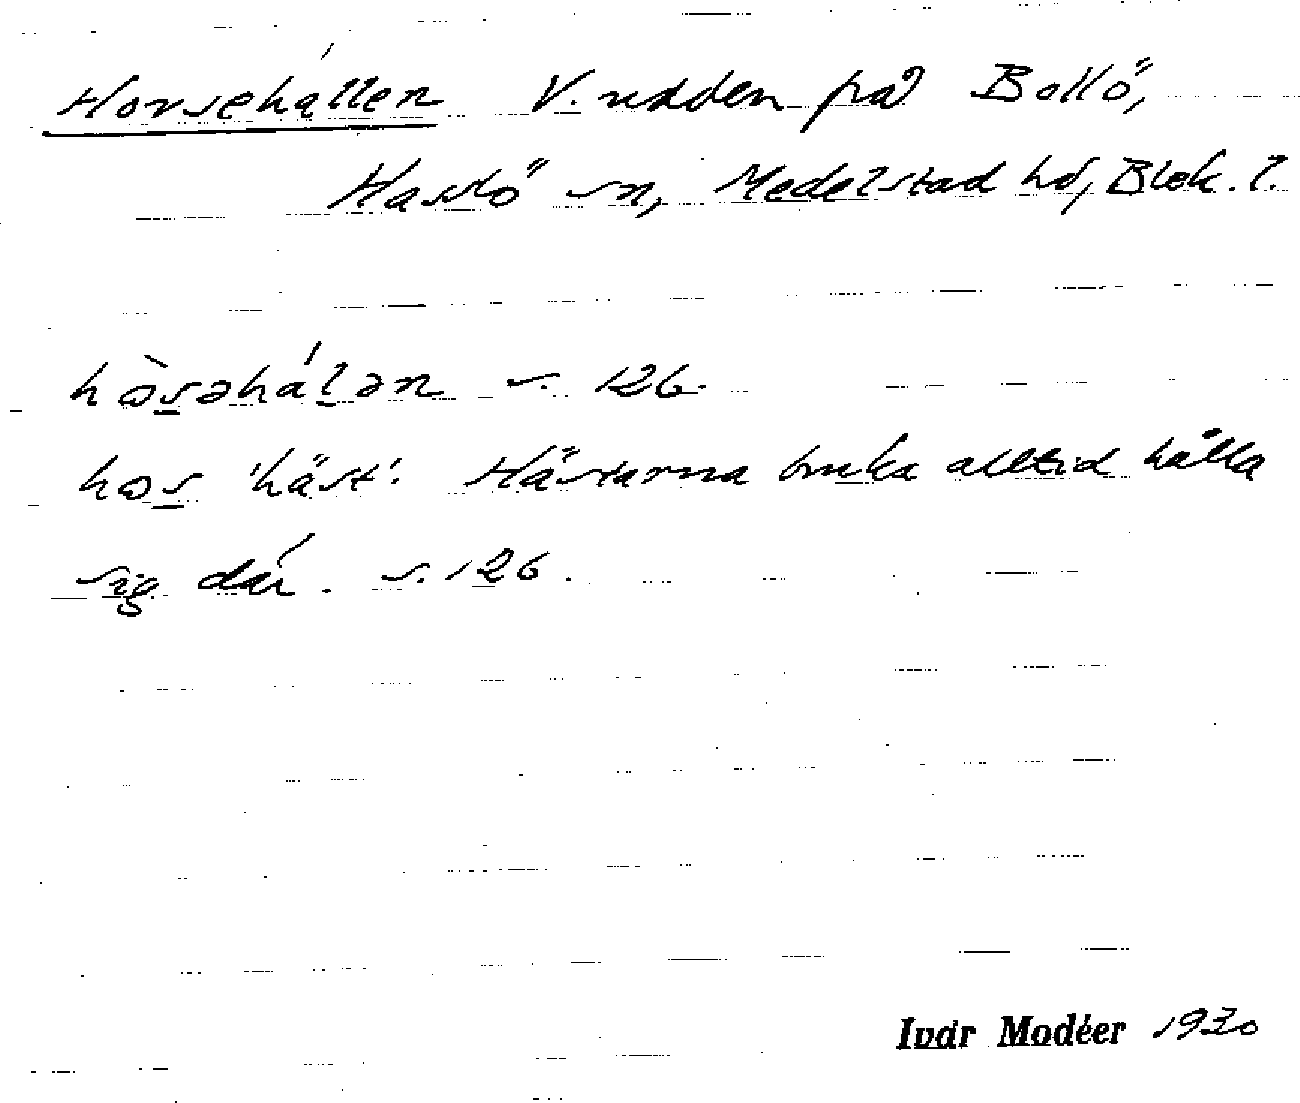 Horsehállen V. udden på Bollö,
Hasslö sn, Medelstad hd, Blek. l.
hòsəhálən s. 126.
hos 'häst'. Hästarna bruka alltid hålla
sig där. s. 126.
Ivar Modéer 1930